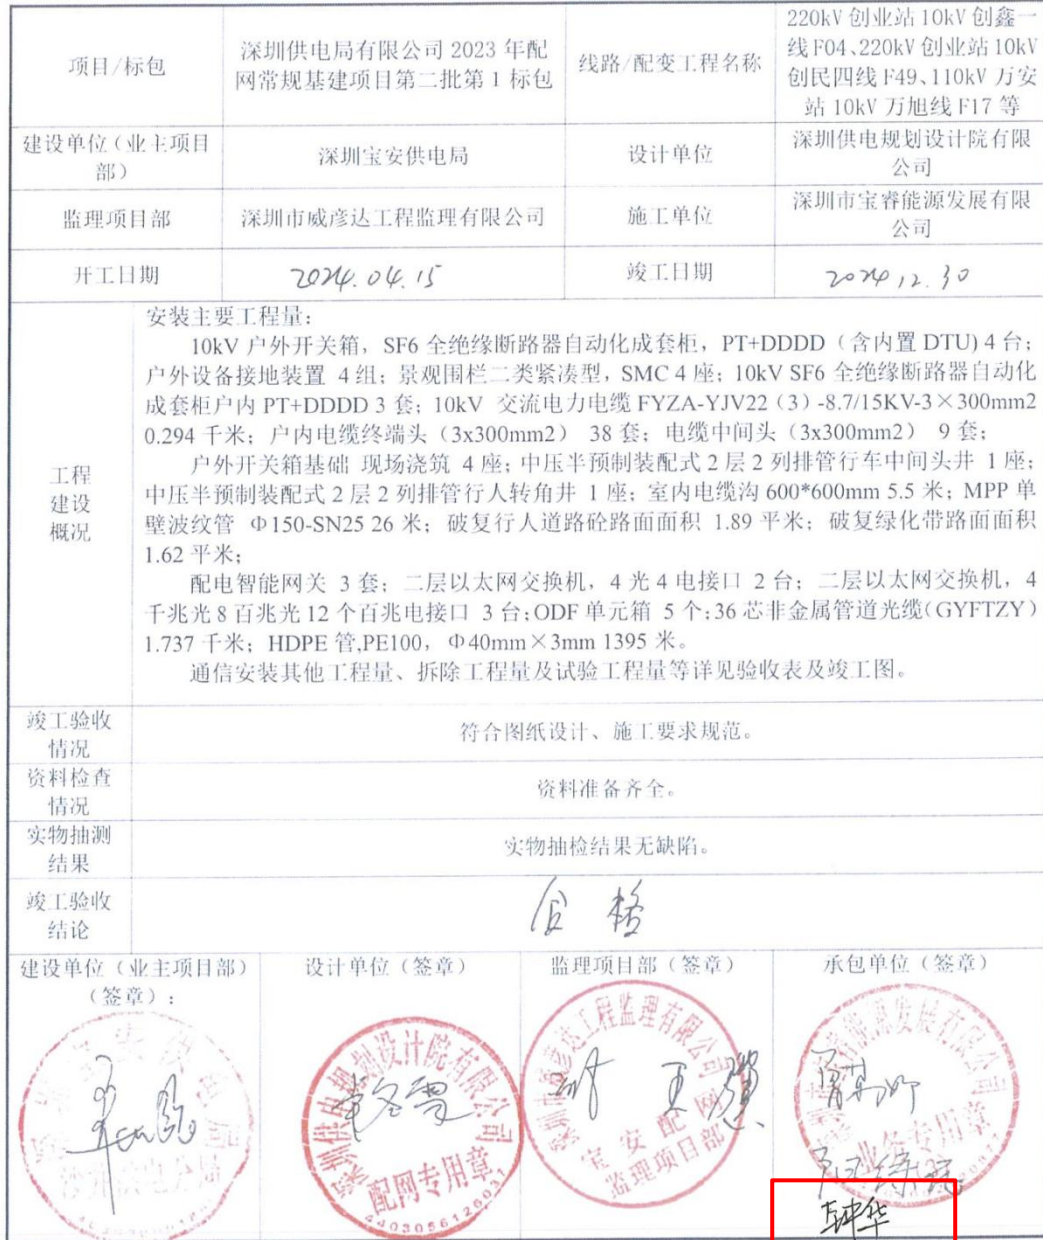 项目/标包
深圳供电局有限公司 2023 年配
网常规基建项目第二批第 1 标包
线路/配变工程名称
220kV 创业站 10kV 创鑫一
线 F04、220kV 创业站 10kV
创民四线 F49、110kV 万安
站 10kV 万旭线 F17 等
建设单位（业主项目
部）
深圳宝安供电局
设计单位
深圳供电规划设计院有限
公司
监理项目部
深圳市威彦达工程监理有限公司
施工单位
深圳市宝睿能源发展有限
公司
开工日期
2024.04.15
竣工日期
2024.12.30
工程
建设
概况
安装主要工程量：
10kV 户外开关箱，SF6 全绝缘断路器自动化成套柜，PT+DDDD（含内置 DTU) 4 台；
户外设备接地装置 4 组；景观围栏二类紧凑型，SMC 4 座；10kV SF6 全绝缘断路器自动化
成套柜户内 PT+DDDD 3 套；10kV 交流电力电缆 FYZA-YJV22（3）-8.7/15KV-3×300mm2
0.294 千米；户内电缆终端头（3x300mm2） 38 套；电缆中间头（3x300mm2） 9 套；
户外开关箱基础 现场浇筑 4 座；中压半预制装配式 2 层 2 列排管行车中间头井 1 座；
中压半预制装配式 2 层 2 列排管行人转角井 1 座；室内电缆沟 600*600mm 5.5 米；MPP 单
壁波纹管 Φ150-SN25 26 米；破复行人道路砼路面面积 1.89 平米；破复绿化带路面面积
1.62 平米；
配电智能网关 3 套；二层以太网交换机，4 光 4 电接口 2 台；二层以太网交换机，4
千兆光 8 百兆光 12 个百兆电接口 3 台；ODF 单元箱 5 个；36 芯非金属管道光缆（GYFTZY）
1.737 千米；HDPE 管,PE100， Φ40mm×3mm 1395 米。
通信安装其他工程量、拆除工程量及试验工程量等详见验收表及竣工图。
竣工验收
情况
符合图纸设计、施工要求规范。
资料检查
情况
资料准备齐全。
实物抽测
结果
实物抽检结果无缺陷。
竣工验收
结论
合格
建设单位（业主项目部）
（签章）：
设计单位（签章）
深圳供电规划设计院有限公司
配网专用章
4403056126031
监理项目部（签章）
深圳市威彦达工程监理有限公司
宝安配网
监理项目部
承包单位（签章）
业务专用章